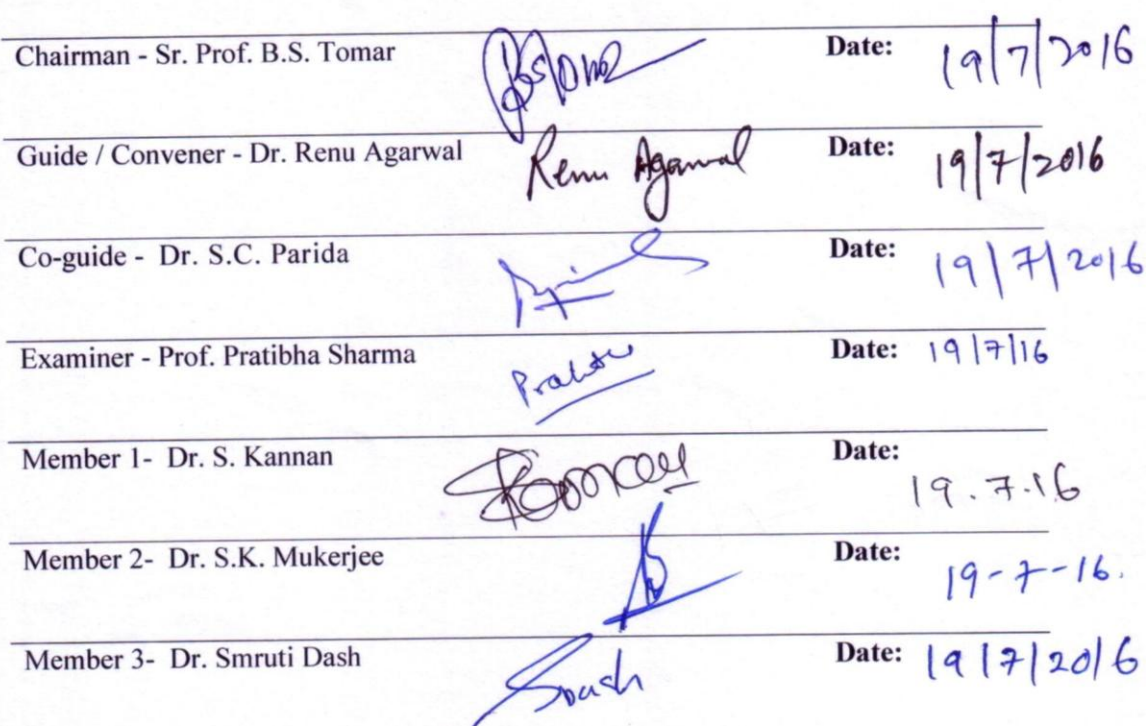 Chairman - Sr. Prof. B.S. Tomar BSTomar Date: 19/7/2016
Guide / Convener - Dr. Renu Agarwal Renu Agarwal Date: 19/7/2016
Co-guide - Dr. S.C. Parida Date: 19/7/2016
Examiner - Prof. Pratibha Sharma Date: 19/7/16
Member 1- Dr. S. Kannan Date: 19.7.16
Member 2- Dr. S.K. Mukerjee Date: 19-7-16.
Member 3- Dr. Smruti Dash SDash Date: 19/7/2016